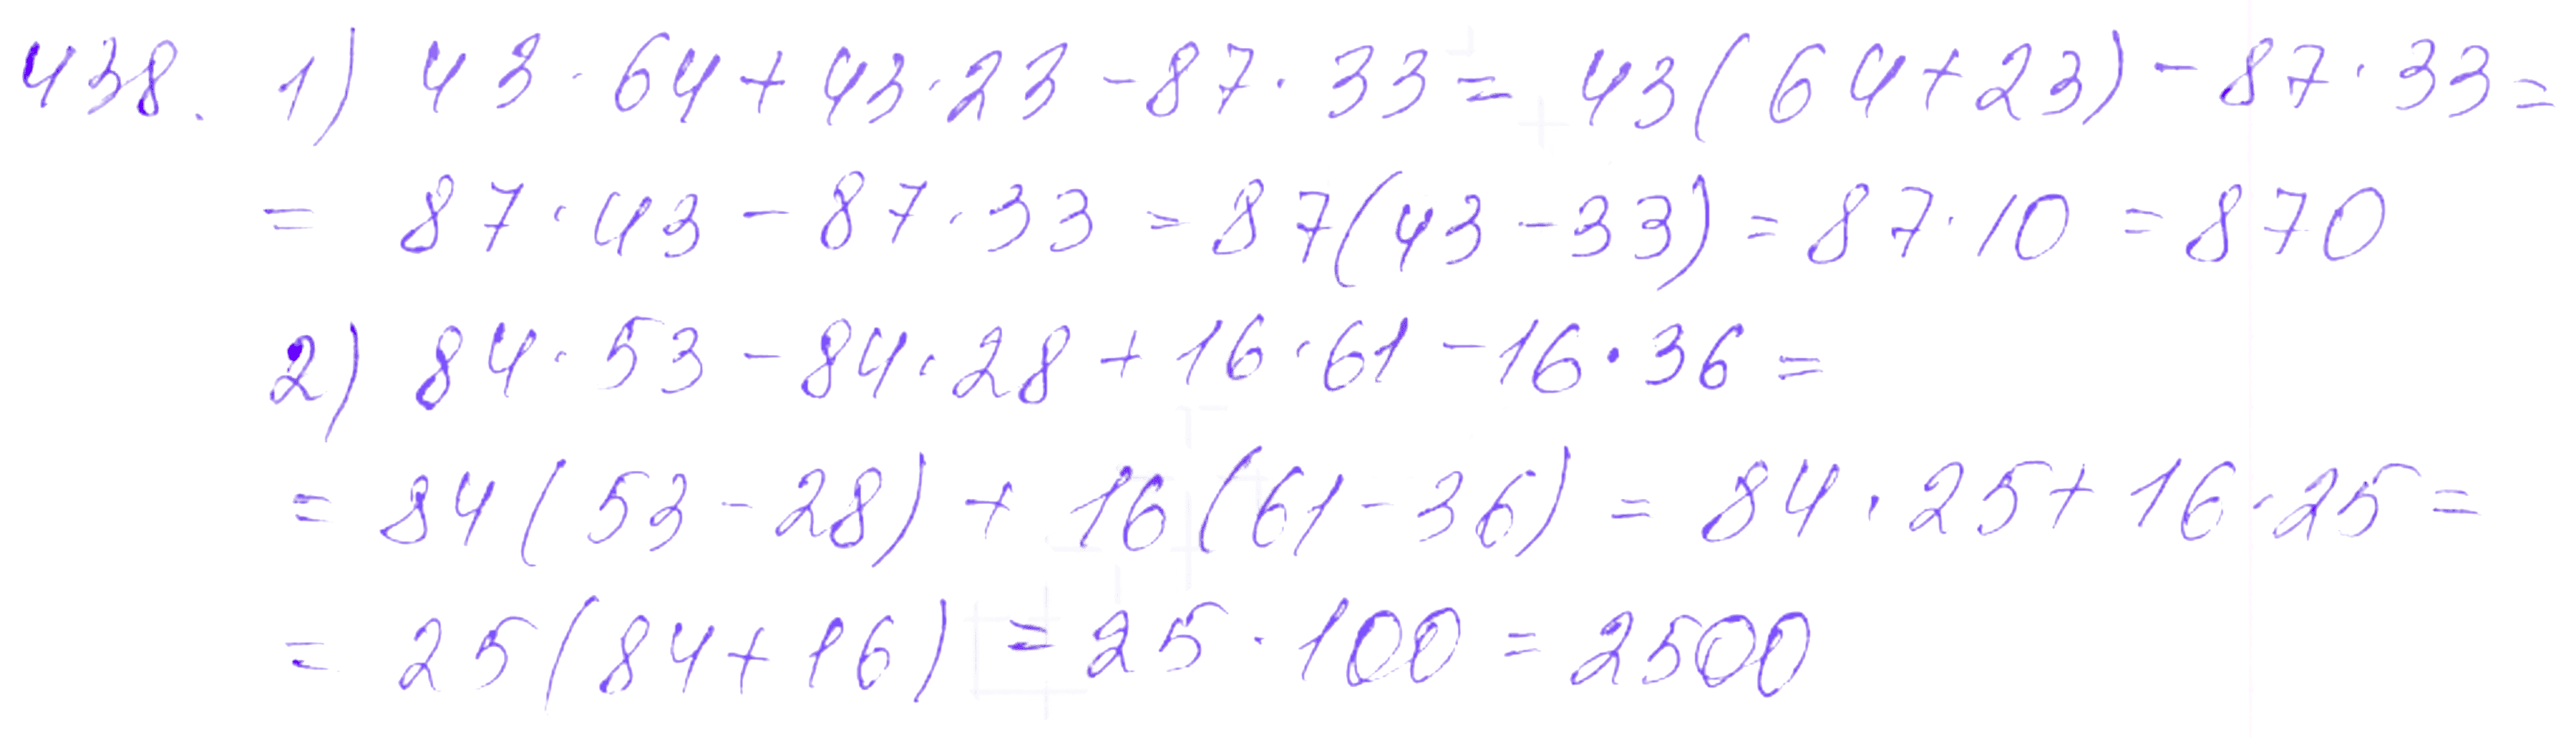 438. 1) 43 · 64 + 43 · 23 - 87 · 33 = 43 ( 64 + 23 ) - 87 · 33 =
= 87 · 43 - 87 · 33 = 87 ( 43 - 33 ) = 87 · 10 = 870
2) 84 · 53 - 84 · 28 + 16 · 61 - 16 · 36 =
= 84 ( 53 - 28 ) + 16 ( 61 - 36 ) = 84 · 25 + 16 · 25 =
= 25 ( 84 + 16 ) = 25 · 100 = 2500